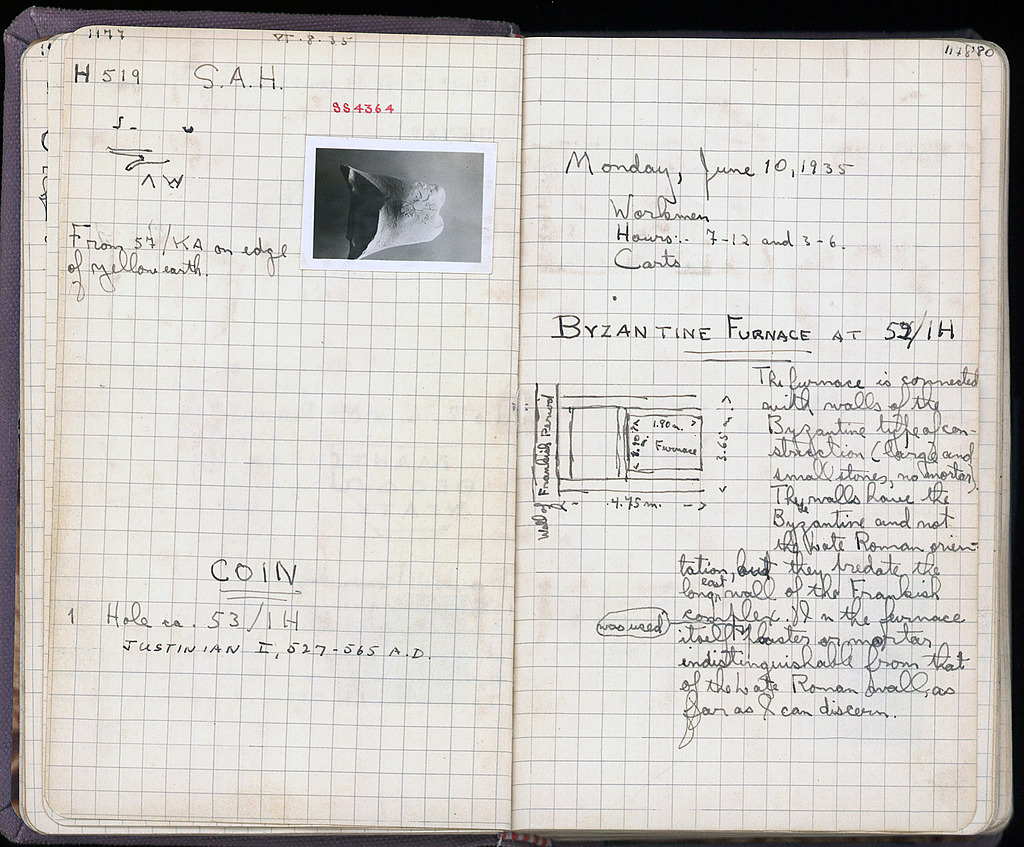 1177
VI.8.35
H 519 S.A.H.
SS4364
From 57/KA on edge
of yellow earth.
COIN
1 Hole ca. 53/IH
JUSTINIAN I, 527-565 A.D.
Monday, June 10, 1935
Workmen
Hours:- 7-12 and 3-6.
Carts
BYZANTINE FURNACE AT 52/IH
The furnace is connected
with walls of the
Byzantine type of con-
struction (large and
small stones, no mortar).
The walls have the
Byzantine and not
the Late Roman orien-
tation, but they predate the
long east wall of the Frankish
complex. In the furnace
was used
itself plaster or mortar
indistinguishable from that
of the Late Roman wall, as
far as I can discern.
Wall of Frankish Period
1.90 m.
Furnace
3.65 m.
4.75 m.